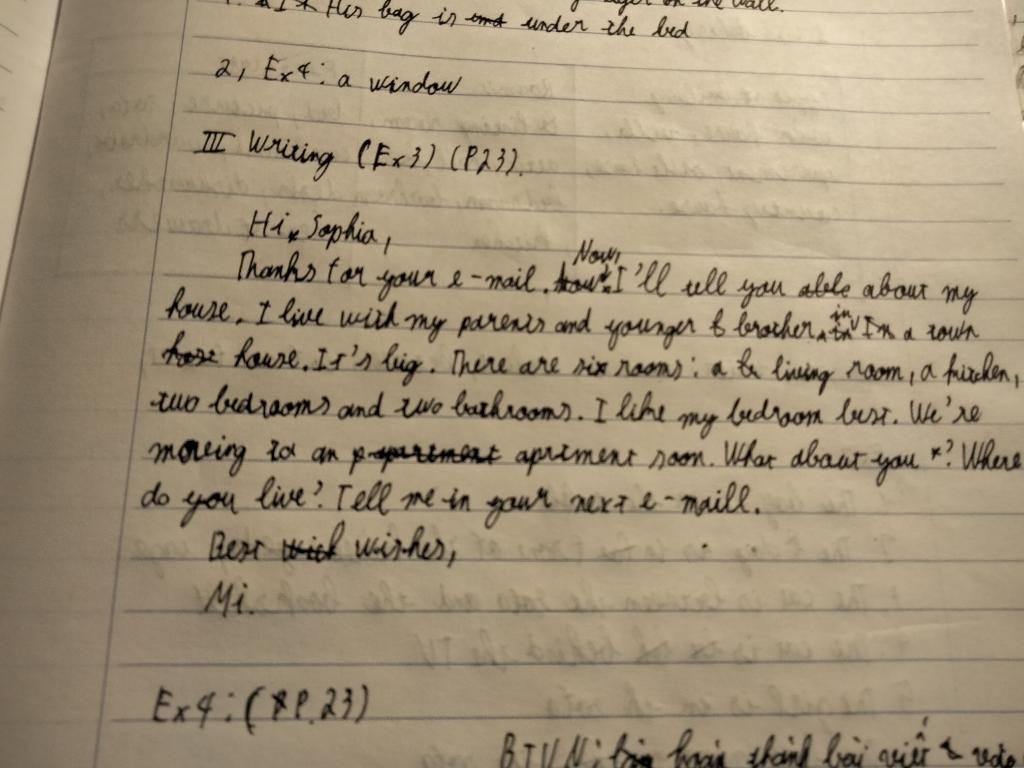 His bag is under the bed
2, Ex4: a window
III Writing (Ex3) (P23).
Hi Sophia,
Thanks for your e-mail. Now, I'll tell you about my
house. I live with my parents and younger brother in a town
house. It's big. There are six rooms: a living room, a kitchen,
two bedrooms and two bathrooms. I like my bedroom best. We're
moving to an apartment soon. What about you? Where
do you live? Tell me in your next e-maill.
Best wishes,
Mi.
Ex4: (P.23)
BTVN: hoàn thành bài viết vào